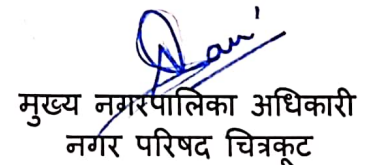 मुख्य नगरपालिका अधिकारी
नगर परिषद चित्रकूट